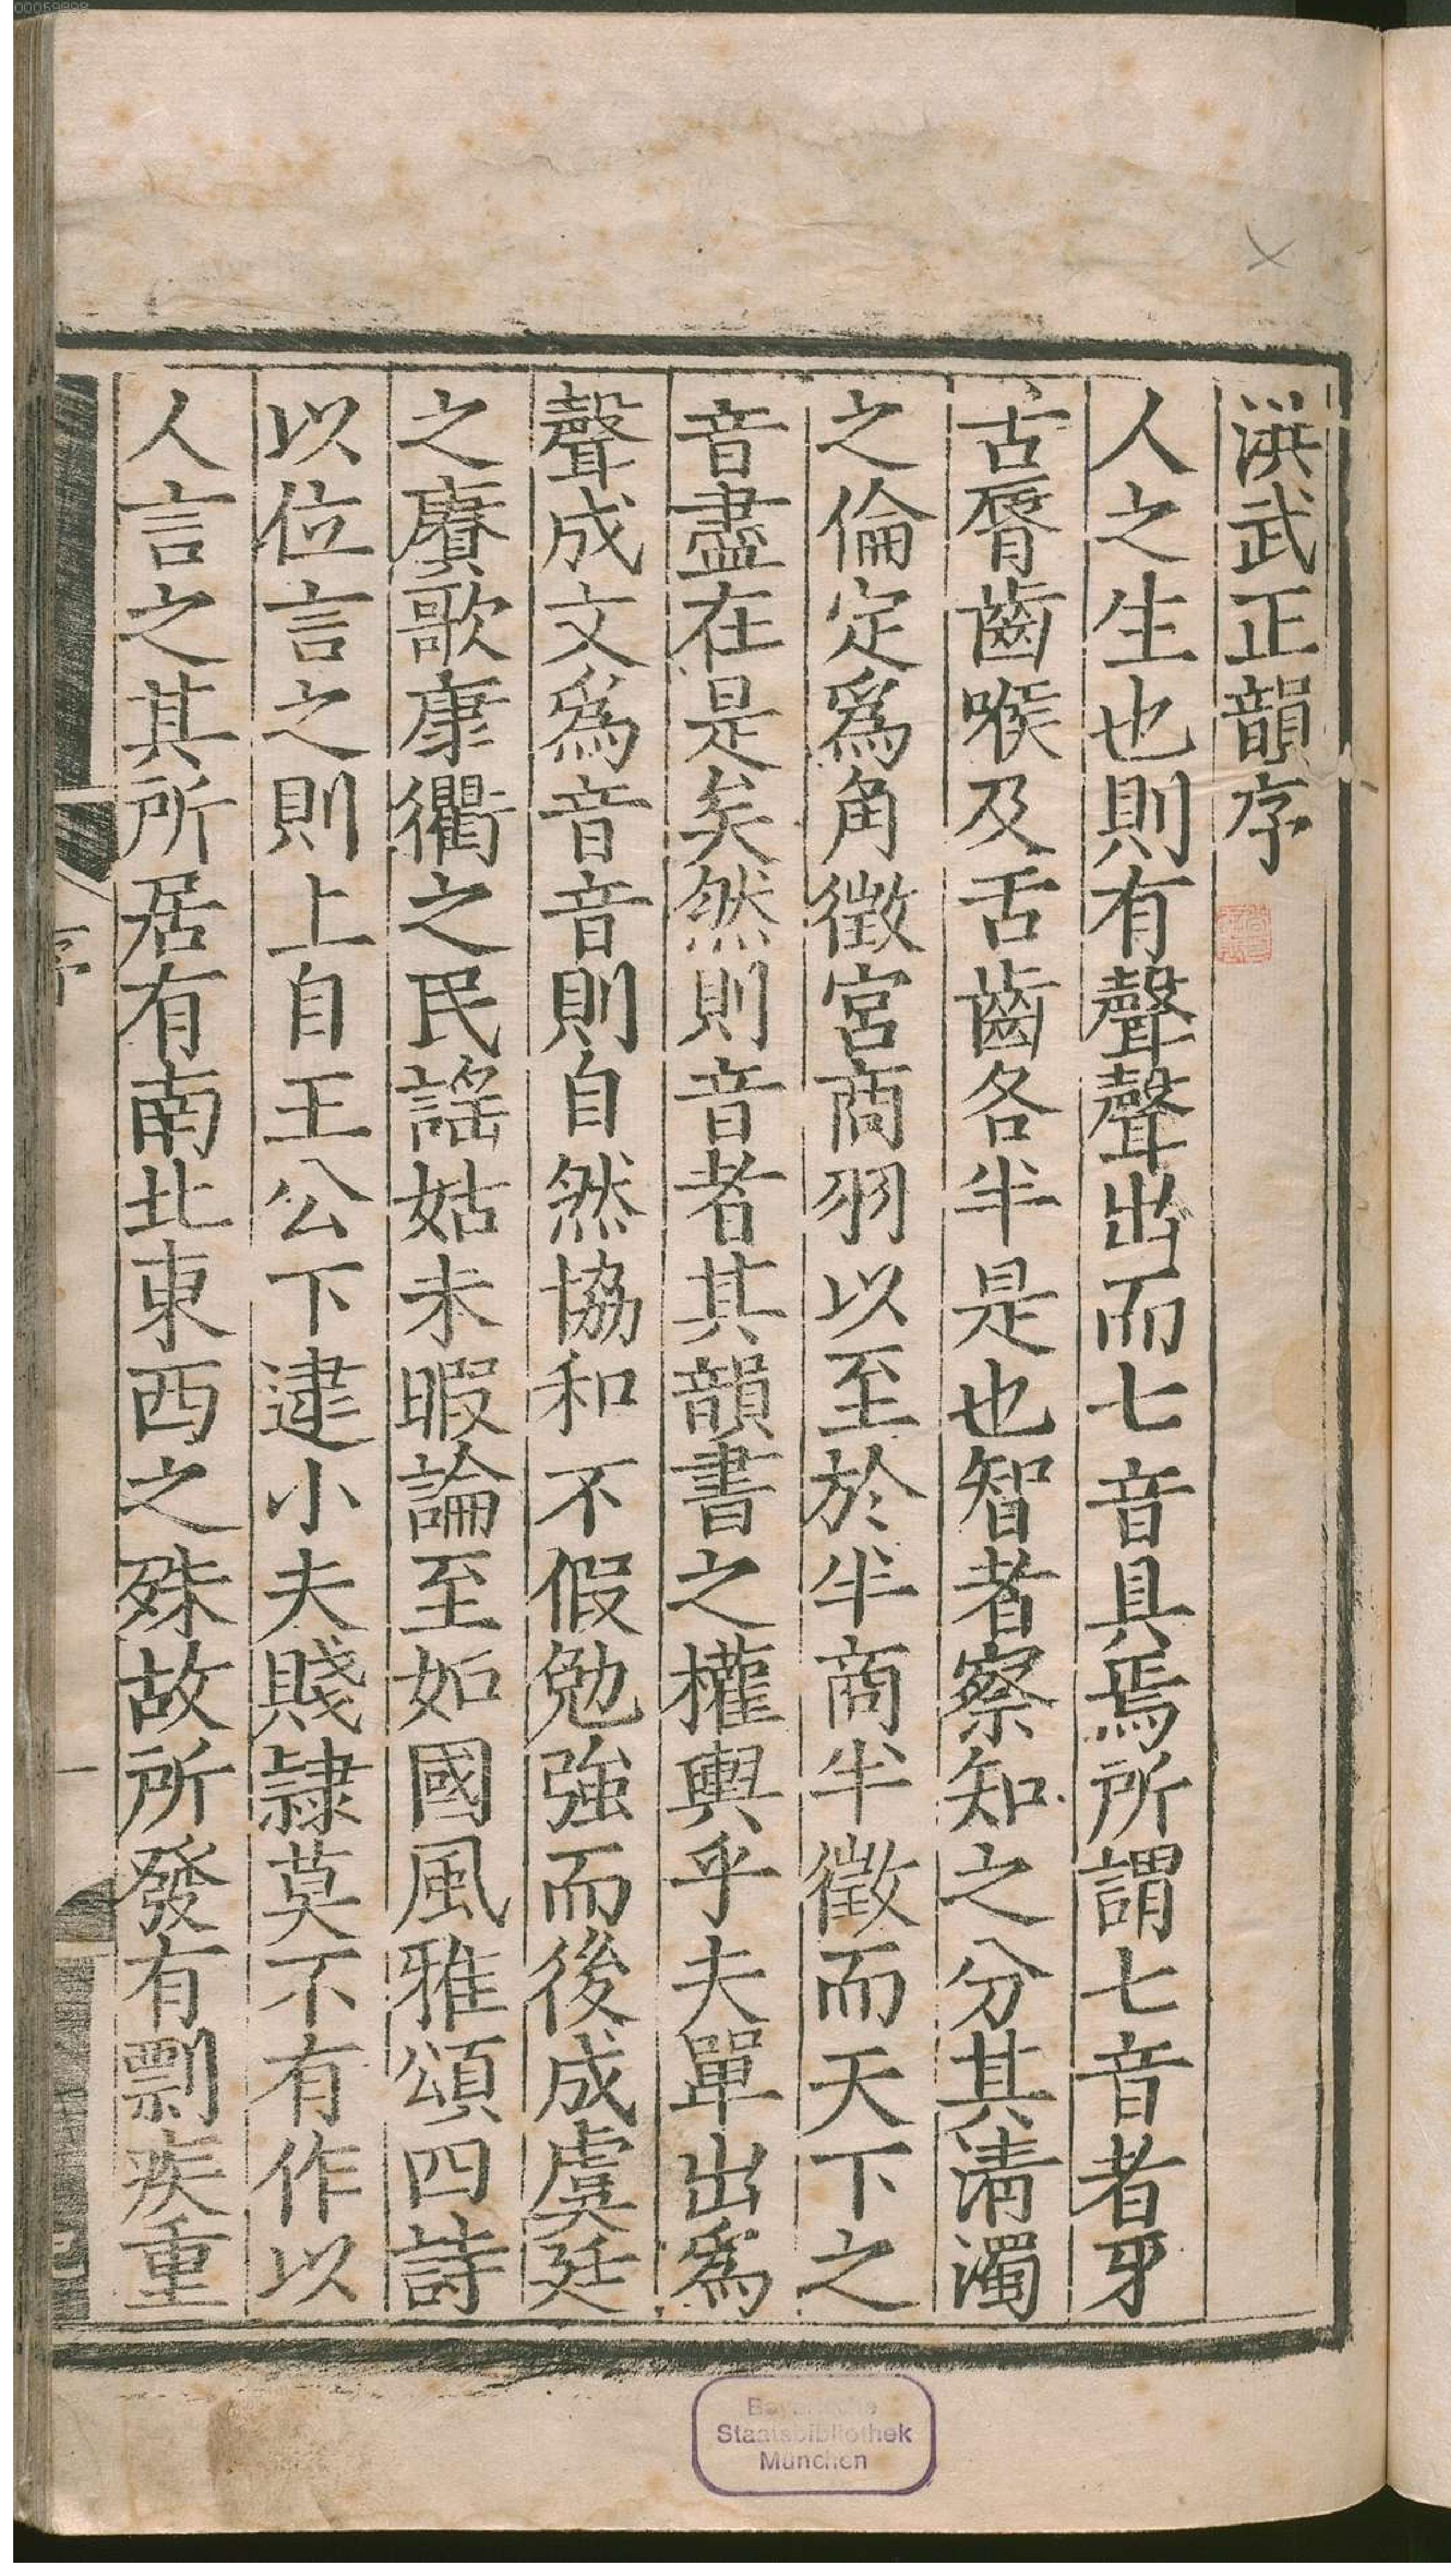 00059898
洪武正韻序
人之生也則有聲聲出而七音具焉所謂七音者牙
舌脣齒喉及舌齒各半是也智者察知之分其清濁
之倫定爲角徵宮商羽以至於半商半徵而天下之
音盡在是矣然則音者其韻書之權輿乎夫單出爲
聲成文爲音音則自然協和不假勉強而後成虞廷
之賡歌康衢之民謠姑未暇論至如國風雅頌四詩
以位言之則上自王公下逮小夫賤隸莫不有作以
人言之其所居有南北東西之殊故所發有剽疾重
序
一
Bayerische
Staatsbibliothek
München